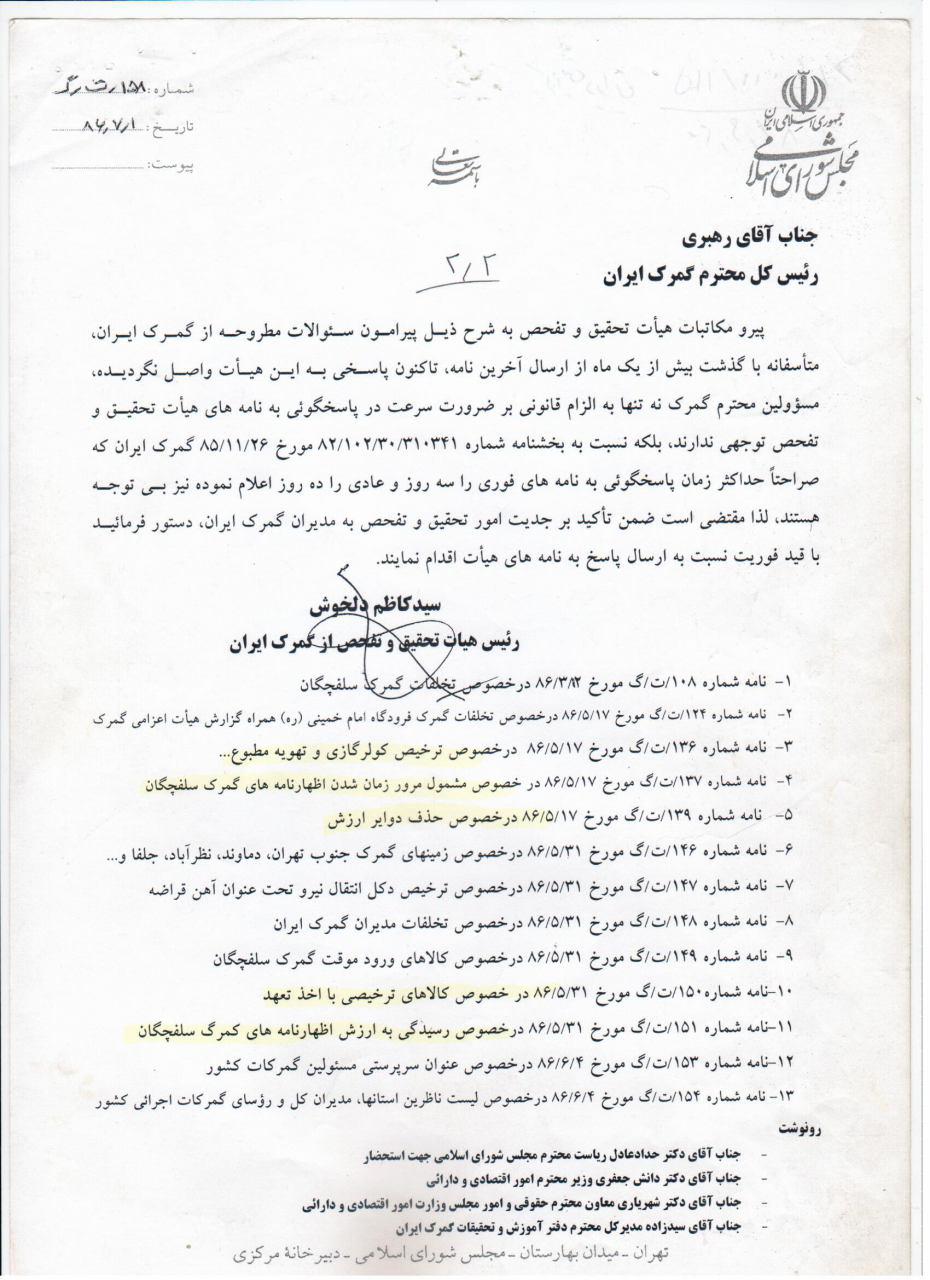 جمهوری اسلامی ایران
مجلس شورای اسلامی
باسمه تعالی
شماره:
تاریخ: ۸۶٫۷٫۱
پیوست:
جناب آقای رهبری
رئیس کل محترم گمرک ایران
۲٫۲
پیرو مکاتبات هیأت تحقیق و تفحص به شرح ذیل پیرامون سئوالات مطروحه از گمرک ایران،
متأسفانه با گذشت بیش از یک ماه از ارسال آخرین نامه، تاکنون پاسخی به این هیأت واصل نگردیده،
مسؤولین محترم گمرک نه تنها به الزام قانونی بر ضرورت سرعت در پاسخگوئی به نامه های هیأت تحقیق و
تفحص توجهی ندارند، بلکه نسبت به بخشنامه شماره ۸۲/۱۰۲/۳۰/۳۱۰۳۴۱ مورخ ۸۵/۱۱/۲۶ گمرک ایران که
صراحتاً حداکثر زمان پاسخگوئی به نامه های فوری را سه روز و عادی را ده روز اعلام نموده نیز بی توجه
هستند، لذا مقتضی است ضمن تأکید بر جدیت امور تحقیق و تفحص به مدیران گمرک ایران، دستور فرمائید
با قید فوریت نسبت به ارسال پاسخ به نامه های هیأت اقدام نمایند.
سیدکاظم دلخوش
رئیس هیات تحقیق و تفحص از گمرک ایران
۱- نامه شماره ۱۰۸/ت/گ مورخ درخصوص تخلفات گمرک سلفچگان
۲- نامه شماره ۱۲۴/ت/گ مورخ ۸۶/۵/۱۷ درخصوص تخلفات گمرک فرودگاه امام خمینی (ره) همراه گزارش هیأت اعزامی گمرک
۳- نامه شماره ۱۳۶/ت/گ مورخ ۸۶/۵/۱۷ درخصوص ترخیص کولرگازی و تهویه مطبوع...
۴- نامه شماره ۱۳۷/ت/گ مورخ ۸۶/۵/۱۷ در خصوص مشمول مرور زمان شدن اظهارنامه های گمرک سلفچگان
۵- نامه شماره ۱۳۹/ت/گ مورخ ۸۶/۵/۱۷ درخصوص حذف دوایر ارزش
۶- نامه شماره ۱۴۶/ت/گ مورخ ۸۶/۵/۳۱ درخصوص زمینهای گمرک جنوب تهران، دماوند، نظرآباد، جلفا و...
۷- نامه شماره ۱۴۷/ت/گ مورخ ۸۶/۵/۳۱ درخصوص ترخیص دکل انتقال نیرو تحت عنوان آهن قراضه
۸- نامه شماره ۱۴۸/ت/گ مورخ ۸۶/۵/۳۱ درخصوص تخلفات مدیران گمرک ایران
۹- نامه شماره ۱۴۹/ت/گ مورخ ۸۶/۵/۳۱ درخصوص کالاهای ورود موقت گمرک سلفچگان
۱۰-نامه شماره۱۵۰/ت/گ مورخ ۸۶/۵/۳۱ در خصوص کالاهای ترخیصی با اخذ تعهد
۱۱-نامه شماره ۱۵۱/ت/گ مورخ ۸۶/۵/۳۱ درخصوص رسیدگی به ارزش اظهارنامه های کمرگ سلفچگان
۱۲-نامه شماره ۱۵۳/ت/گ مورخ ۸۶/۶/۴ درخصوص عنوان سرپرستی مسئولین گمرکات کشور
۱۳- نامه شماره ۱۵۴/ت/گ مورخ ۸۶/۶/۴ درخصوص لیست ناظرین استانها، مدیران کل و رؤسای گمرکات اجرائی کشور
رونوشت
- جناب آقای دکتر حدادعادل ریاست محترم مجلس شورای اسلامی جهت استحضار
- جناب آقای دکتر دانش جعفری وزیر محترم امور اقتصادی و دارائی
- جناب آقای دکتر شهریاری معاون محترم حقوقی و امور مجلس وزارت امور اقتصادی و دارائی
- جناب آقای سیدزاده مدیرکل محترم دفتر آموزش و تحقیقات گمرک ایران
تهران ـ میدان بهارستان ـ مجلس شورای اسلامی ـ دبیرخانهٔ مرکزی